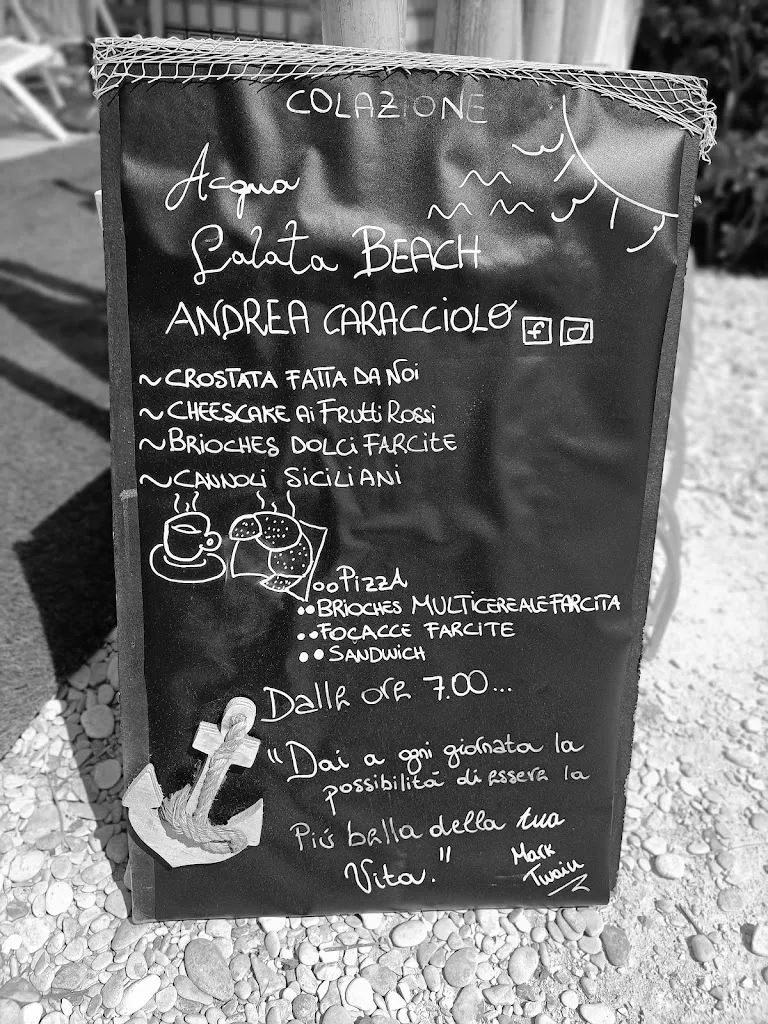 COLAZIONE
Acqua
Salata BEACH
ANDREA CARACCIOLO f
~CROSTATA FATTA DA NOI
~CHEESCAKE Ai FRutti Rossi
~BRIOCHES DOLCi FARCITE
~CANNOLI SICILIANI
PizzA
BRIOCHES MULTICEREALE FARCITA
FOCACCE FARCITE
SANDWICH
Dalle ore 7.00...
"Dai a ogni giornata la
possibilitá di essere la
Piú bella della tua
Vita."
Mark
Twain